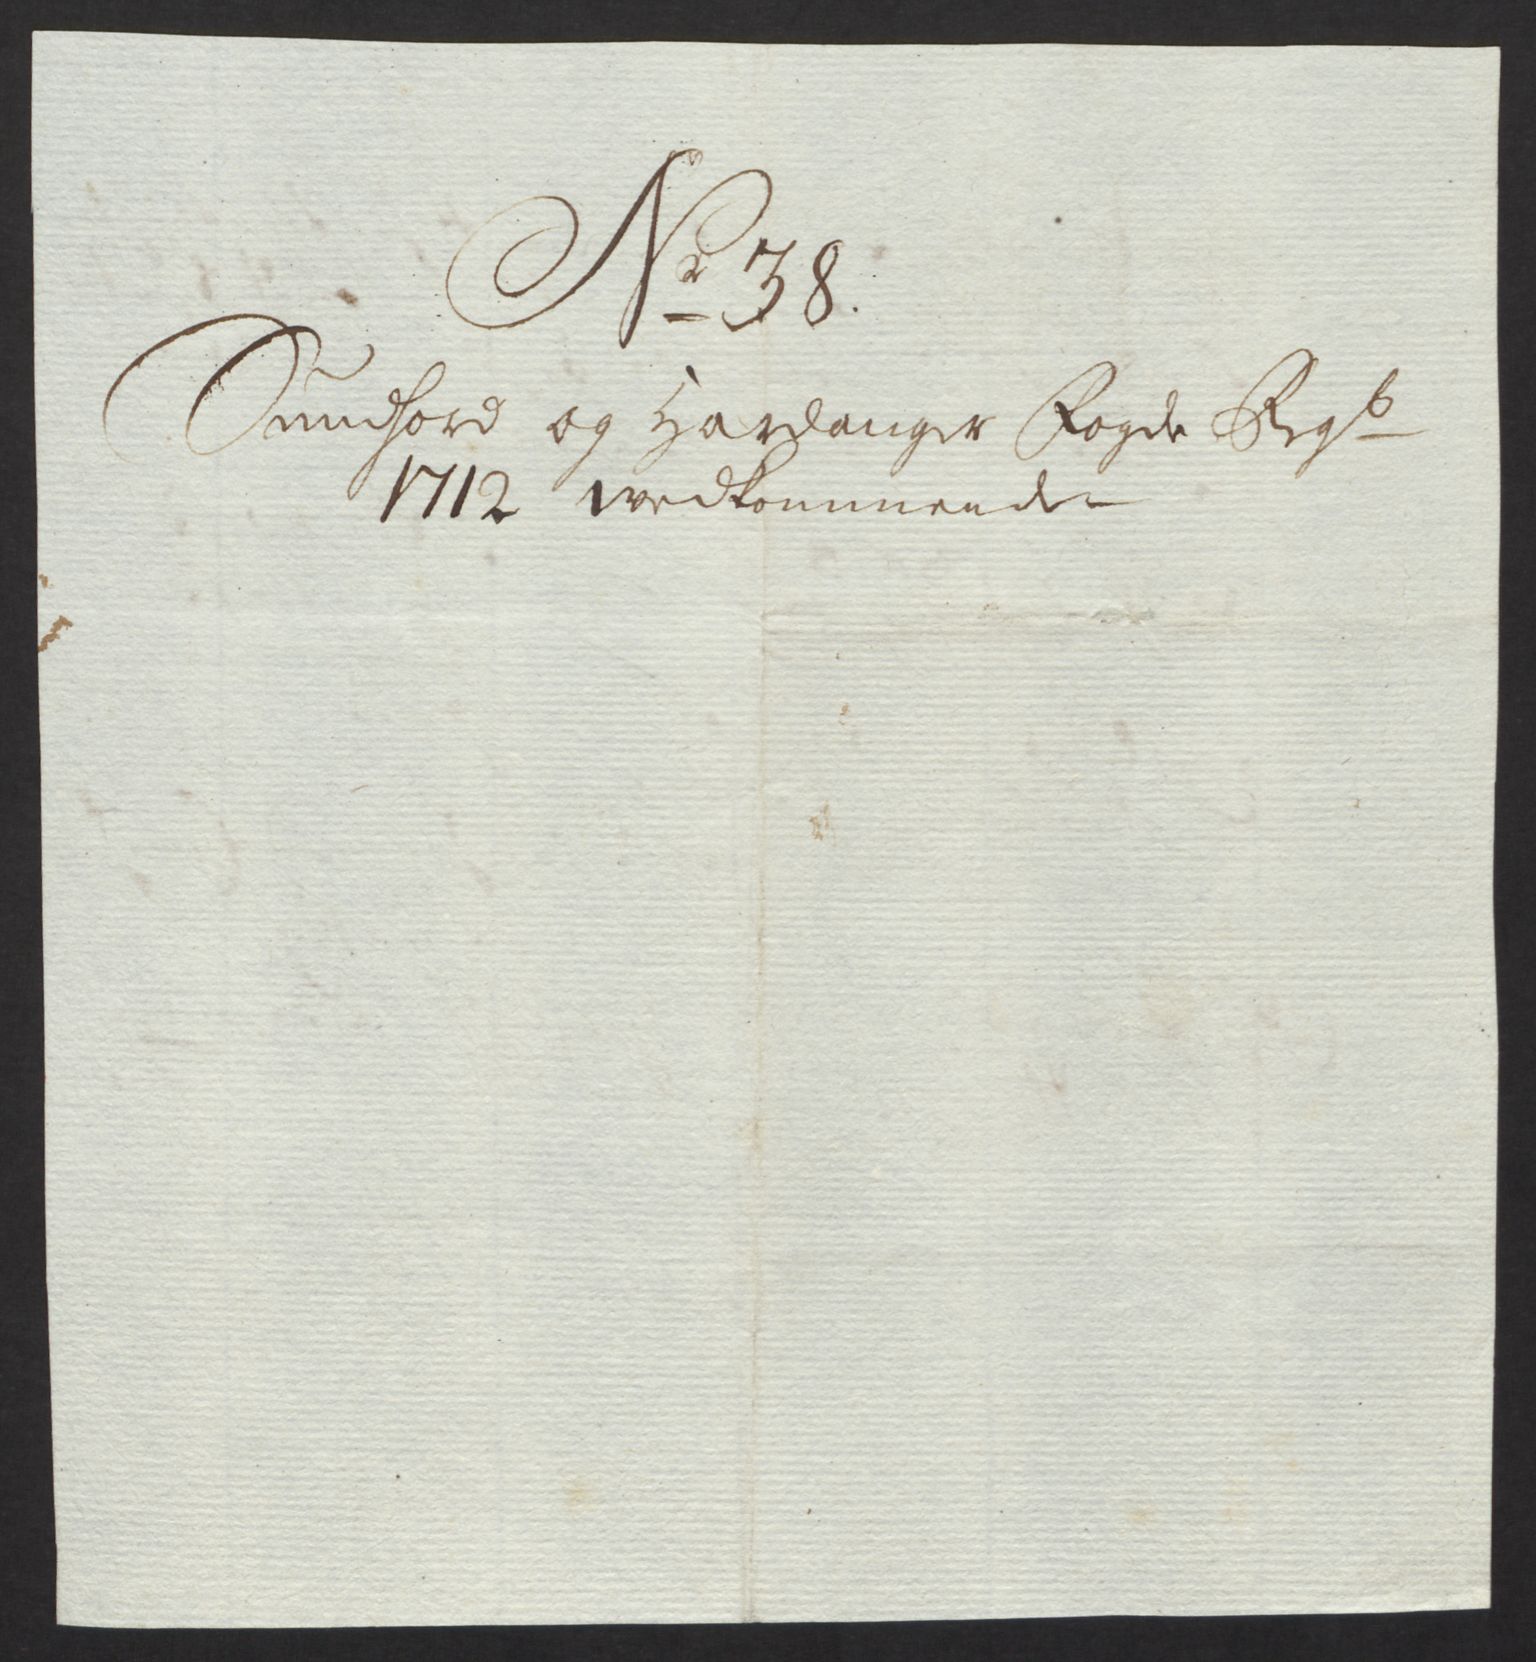 Nr 38.
Sundhord og Hardanger Fogde Regb
1712 wedkommende